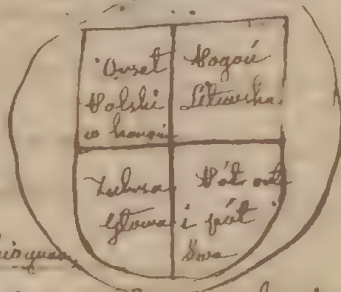 Orzeł
Polski
w koronie
Pogoń
Litewska
Żubrza
głowa
Pół orła
i pół
lwa